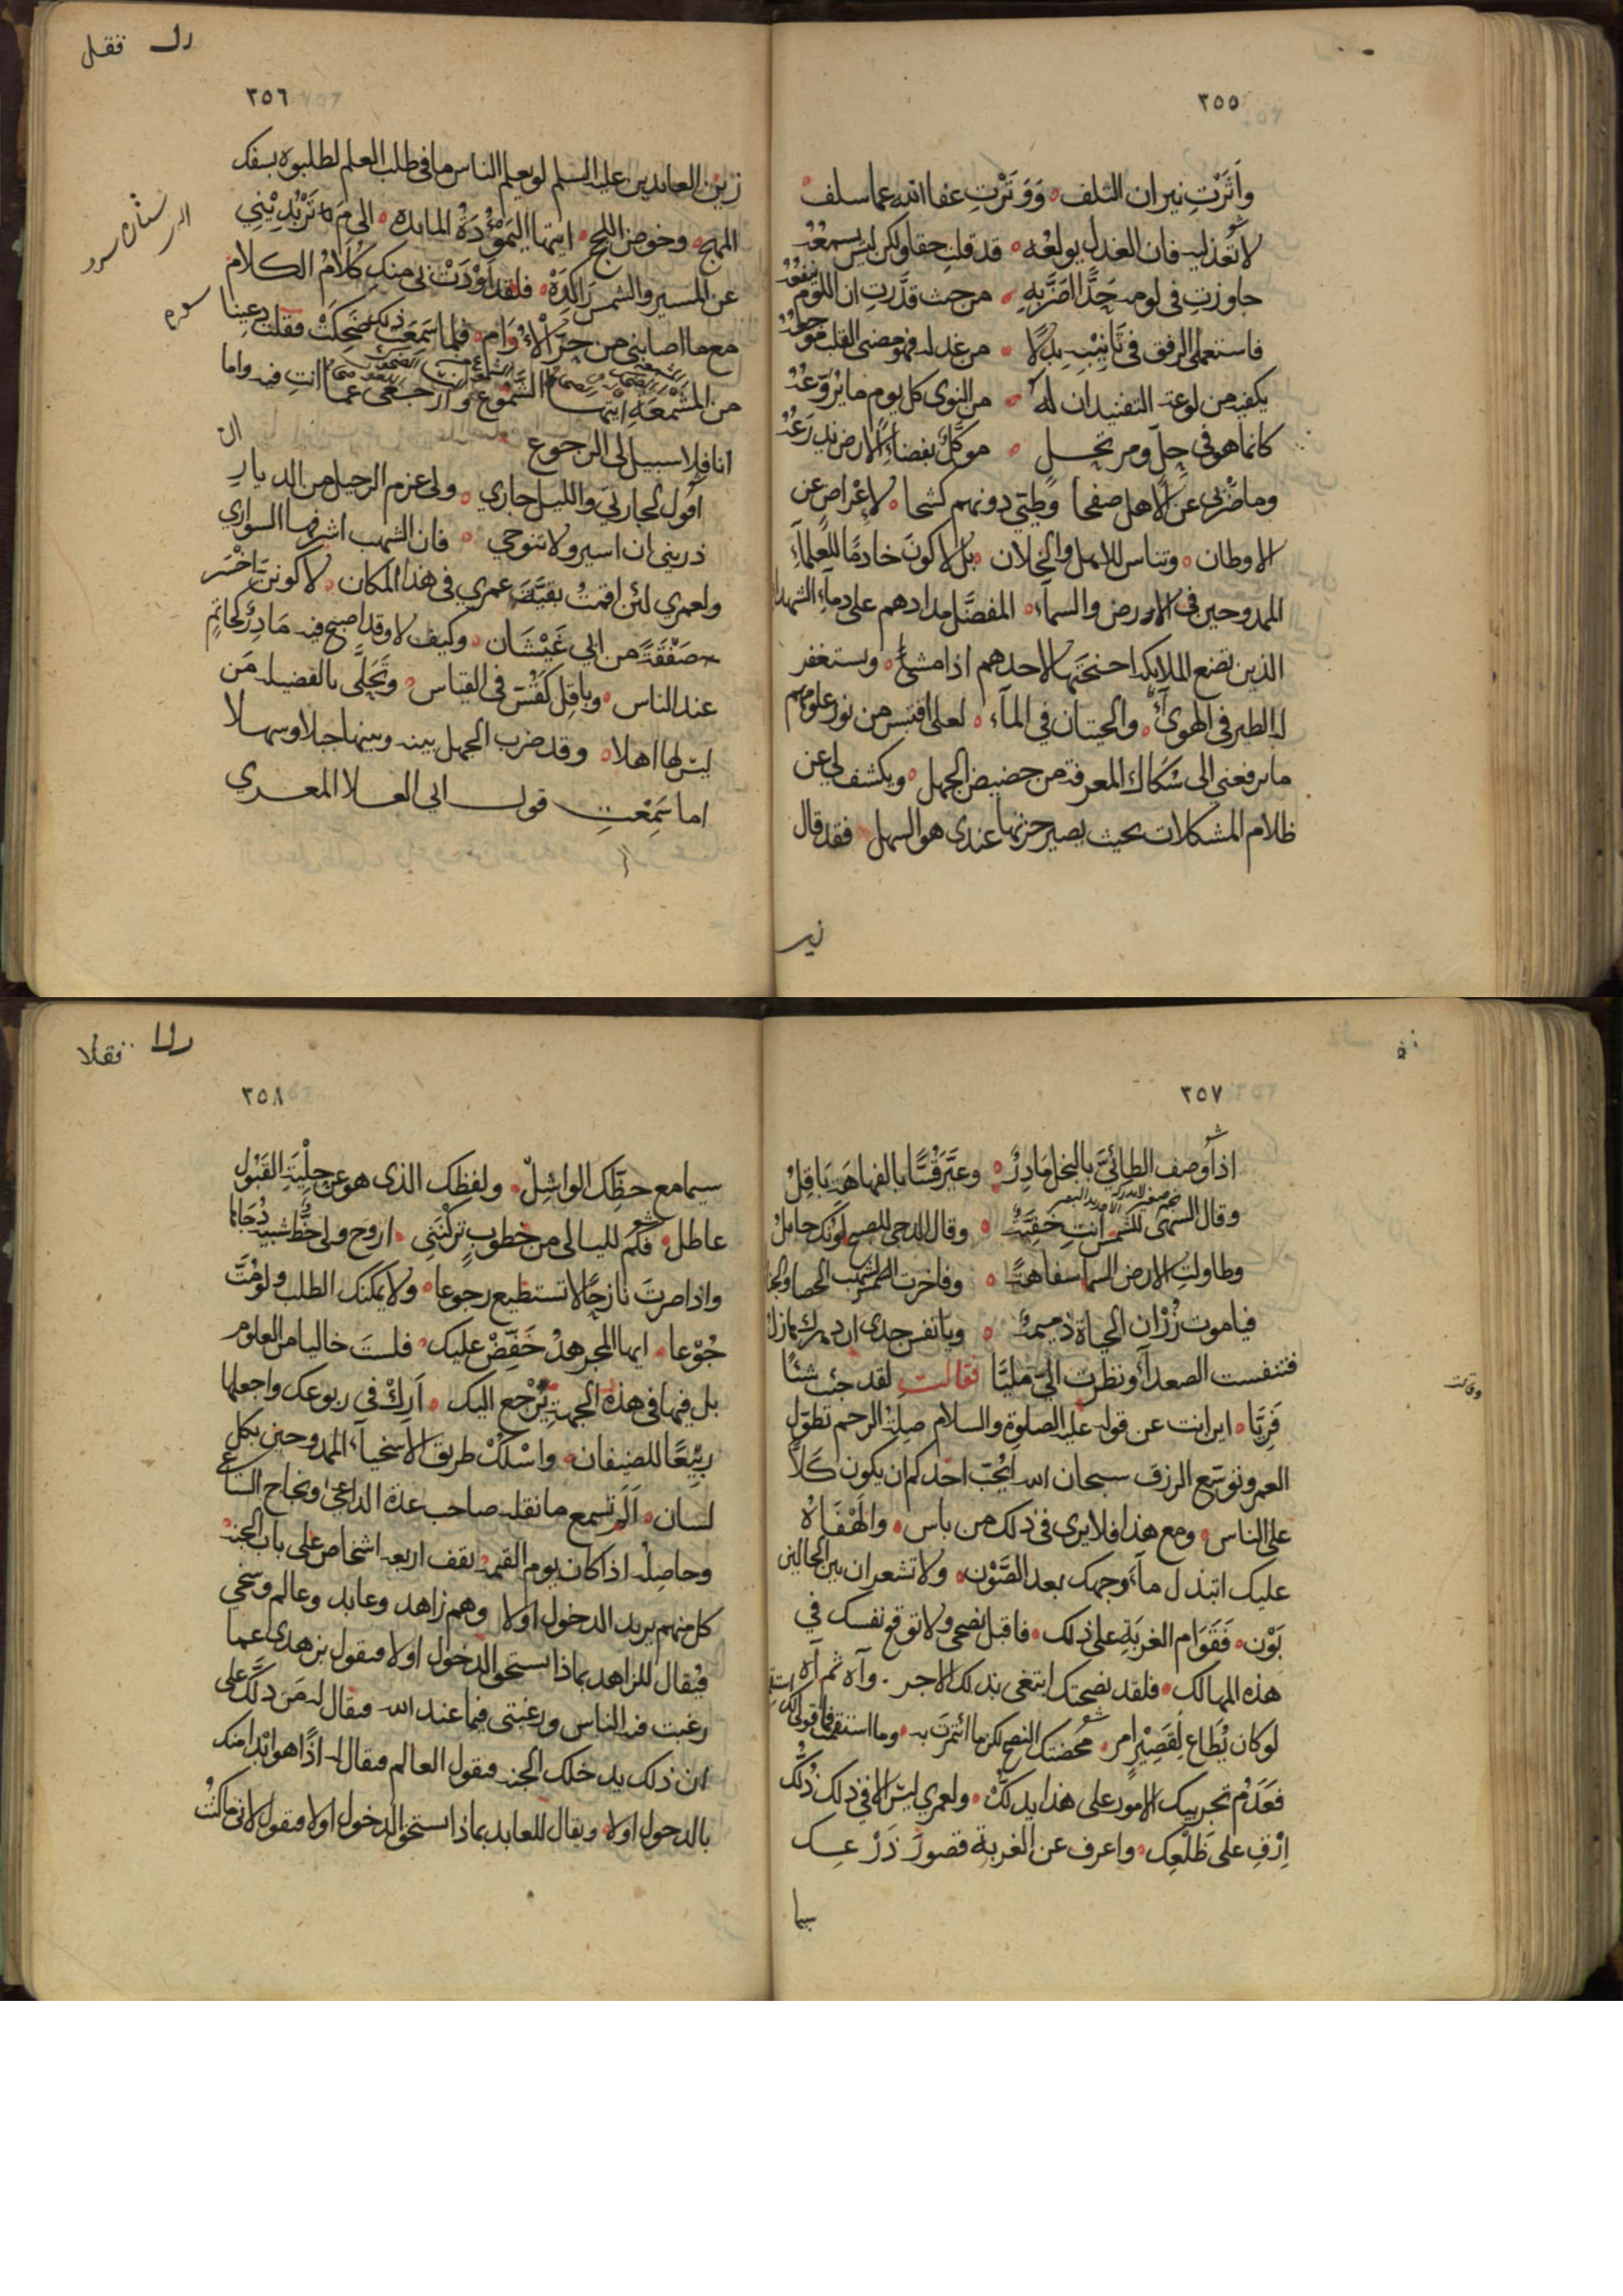 ٣٥٥
واثرت نيران التلف ووترت عفا الله عما سلف
لا تعذليه فان العذل يولعه قد قلت حقا ولكن ليس يسمعه
جاوزت في لومه حدا اضر به من حيث قدرت ان اللوم ينفعه
فاستعملي الرفق في تانيبه بدلا من عذله فهو مضنى القلب موجعه
يكفيه من لوعة التفنيد ان له من النوى كل يوم ما يروعه
كانما هو في حل ومرتحل موكل بفضاء الارض يذرعه
وما ضربي عن الاهل صفحا وطيتي دونهم كشحا لاعراض عن
الاوطان وتناس للاهل والخلان بل لاكون خادما للعلماء
الممدوحين في الارض والسماء المفضل مدادهم على دماء الشهداء
الذين تضع الملايكة اجنحتها لاحدهم اذا مشى ويستغفر
له الطير في الهوى والحيتان في الماء لعلي اقتبس من نور علومهم
ما يرفعني الى سكاك المعرفة من حضيض الجهل ويكشف لي عن
ظلام المشكلات بحيث يصير حزنها عندي هو السهل فقد قال
زين
٣٥٦
زين العابدين عليه السلم لو يعلم الناس ما في طلب العلم لطلبوه بسفك
المهج وخوض اللجج ايتها الموده المايده الى م تربديني
عن المسير والشمس راكدة فلقد اودت بي منك كلام الكلام
مع ما اصابني من حر الاوام فلما سمعت ذلك ضحكت فقلت دعينا
من المشمعة ايتها الشموع وارجعي عما انت فيه واما
انا فلا سبيل لي الى الرجوع
اقول لجارتي والليل جاري ولي عزم الرحيل من الديار
ذريني ان اسير ولا تنوحي فان الشهب اشرفها السواري
ولعمري لئن اقمت بقية عمري في هذا المكان لاكونن اخسر
صفقة من ابي غبشان وكيف لا وقد اصبح فيه مادر كحاتم
عند الناس وباقل كقس في القياس وتحلى بالفضيلة من
ليس لها اهلا وقد ضرب الجهل بينه وبينها جبلا وسهلا
اما سمعت قول ابي العلا المعري
٣٥٧
اذا وصف الطائي بالبخل مادر وعير قسا بالفهاهة باقل
وقال السهى للشمس انت خفية وقال الدجى للصبح لونك حامل
وطاولت الارض السما سفاهة وفاخرت الشهب الحصا والجنادل
فيا موت زر ان الحياة ذميمة ويا نفس جدي ان دهرك هازل
فتنفست الصعدا ونظرت الي مليا فقالت لقد جئت شيئا
فريا اين انت عن قوله عليه الصلوة والسلام صلة الرحم تطول
العمر وتوسع الرزق سبحان الله ايحب احدكم ان يكون كلا
على الناس ومع هذا فلا يرى في ذلك من باس والهفاه
عليك اتبذل ماء وجهك بعد الصون ولا تشعر ان بين الحالين
بون فقوام الغربة على ذلك فاقبل نصحي ولا توقع نفسك في
هذه المهالك فلقد نصحتك ابتغي بذلك الاجر وآه ثم آه
لو كان يطاع لقصير امر محضتك النصح لكن ما ائتمرت به وما استقمت فما قولي لك استقم
فعدم تجريبك الامور على هذا يدلك ولعمري ليس الا في ذلك ذلك
ارق على ظلعك واعرف عن الغربة قصور ذرعك
سيما
٣٥٨
سيما مع حظك الواشل ولفظك الذي هو عن حلية القبول
عاطل فكم لليالي من خطوب تركنني اروح ولي خط شبيه دجاها
واذا صرت نازحا لا تستطيع رجوعا ولا يمكنك الطلب ولو مت
جوعا ايها المجرهد خفض عليك فلست خاليا من العلوم
بل فيها في هذه الجهة يرجع اليك ارك في ربوعك واجعلها
ربيعا للضيفان واسلك طريق الاسخياء الممدوحين بكل
لسان الم تسمع ما نقله صاحب عدة الداعي ونجاح الساعي
وحاصله اذا كان يوم القيمة يقف اربعة اشخاص على باب الجنة
كل منهم يريد الدخول اولا وهم زاهد وعابد وعالم وسخي
فيقال للزاهد بماذا تستحق الدخول اولا فيقول بزهدي عما
رغبت فيه الناس ورغبتي فيما عند الله فيقال له من دلك على
ان ذلك يدخلك الجنة فيقول العالم فيقال له اذا هو ابدا منك
بالدخول اولا ويقال للعابد بماذا تستحق الدخول اولا فيقول لاني ما كنت